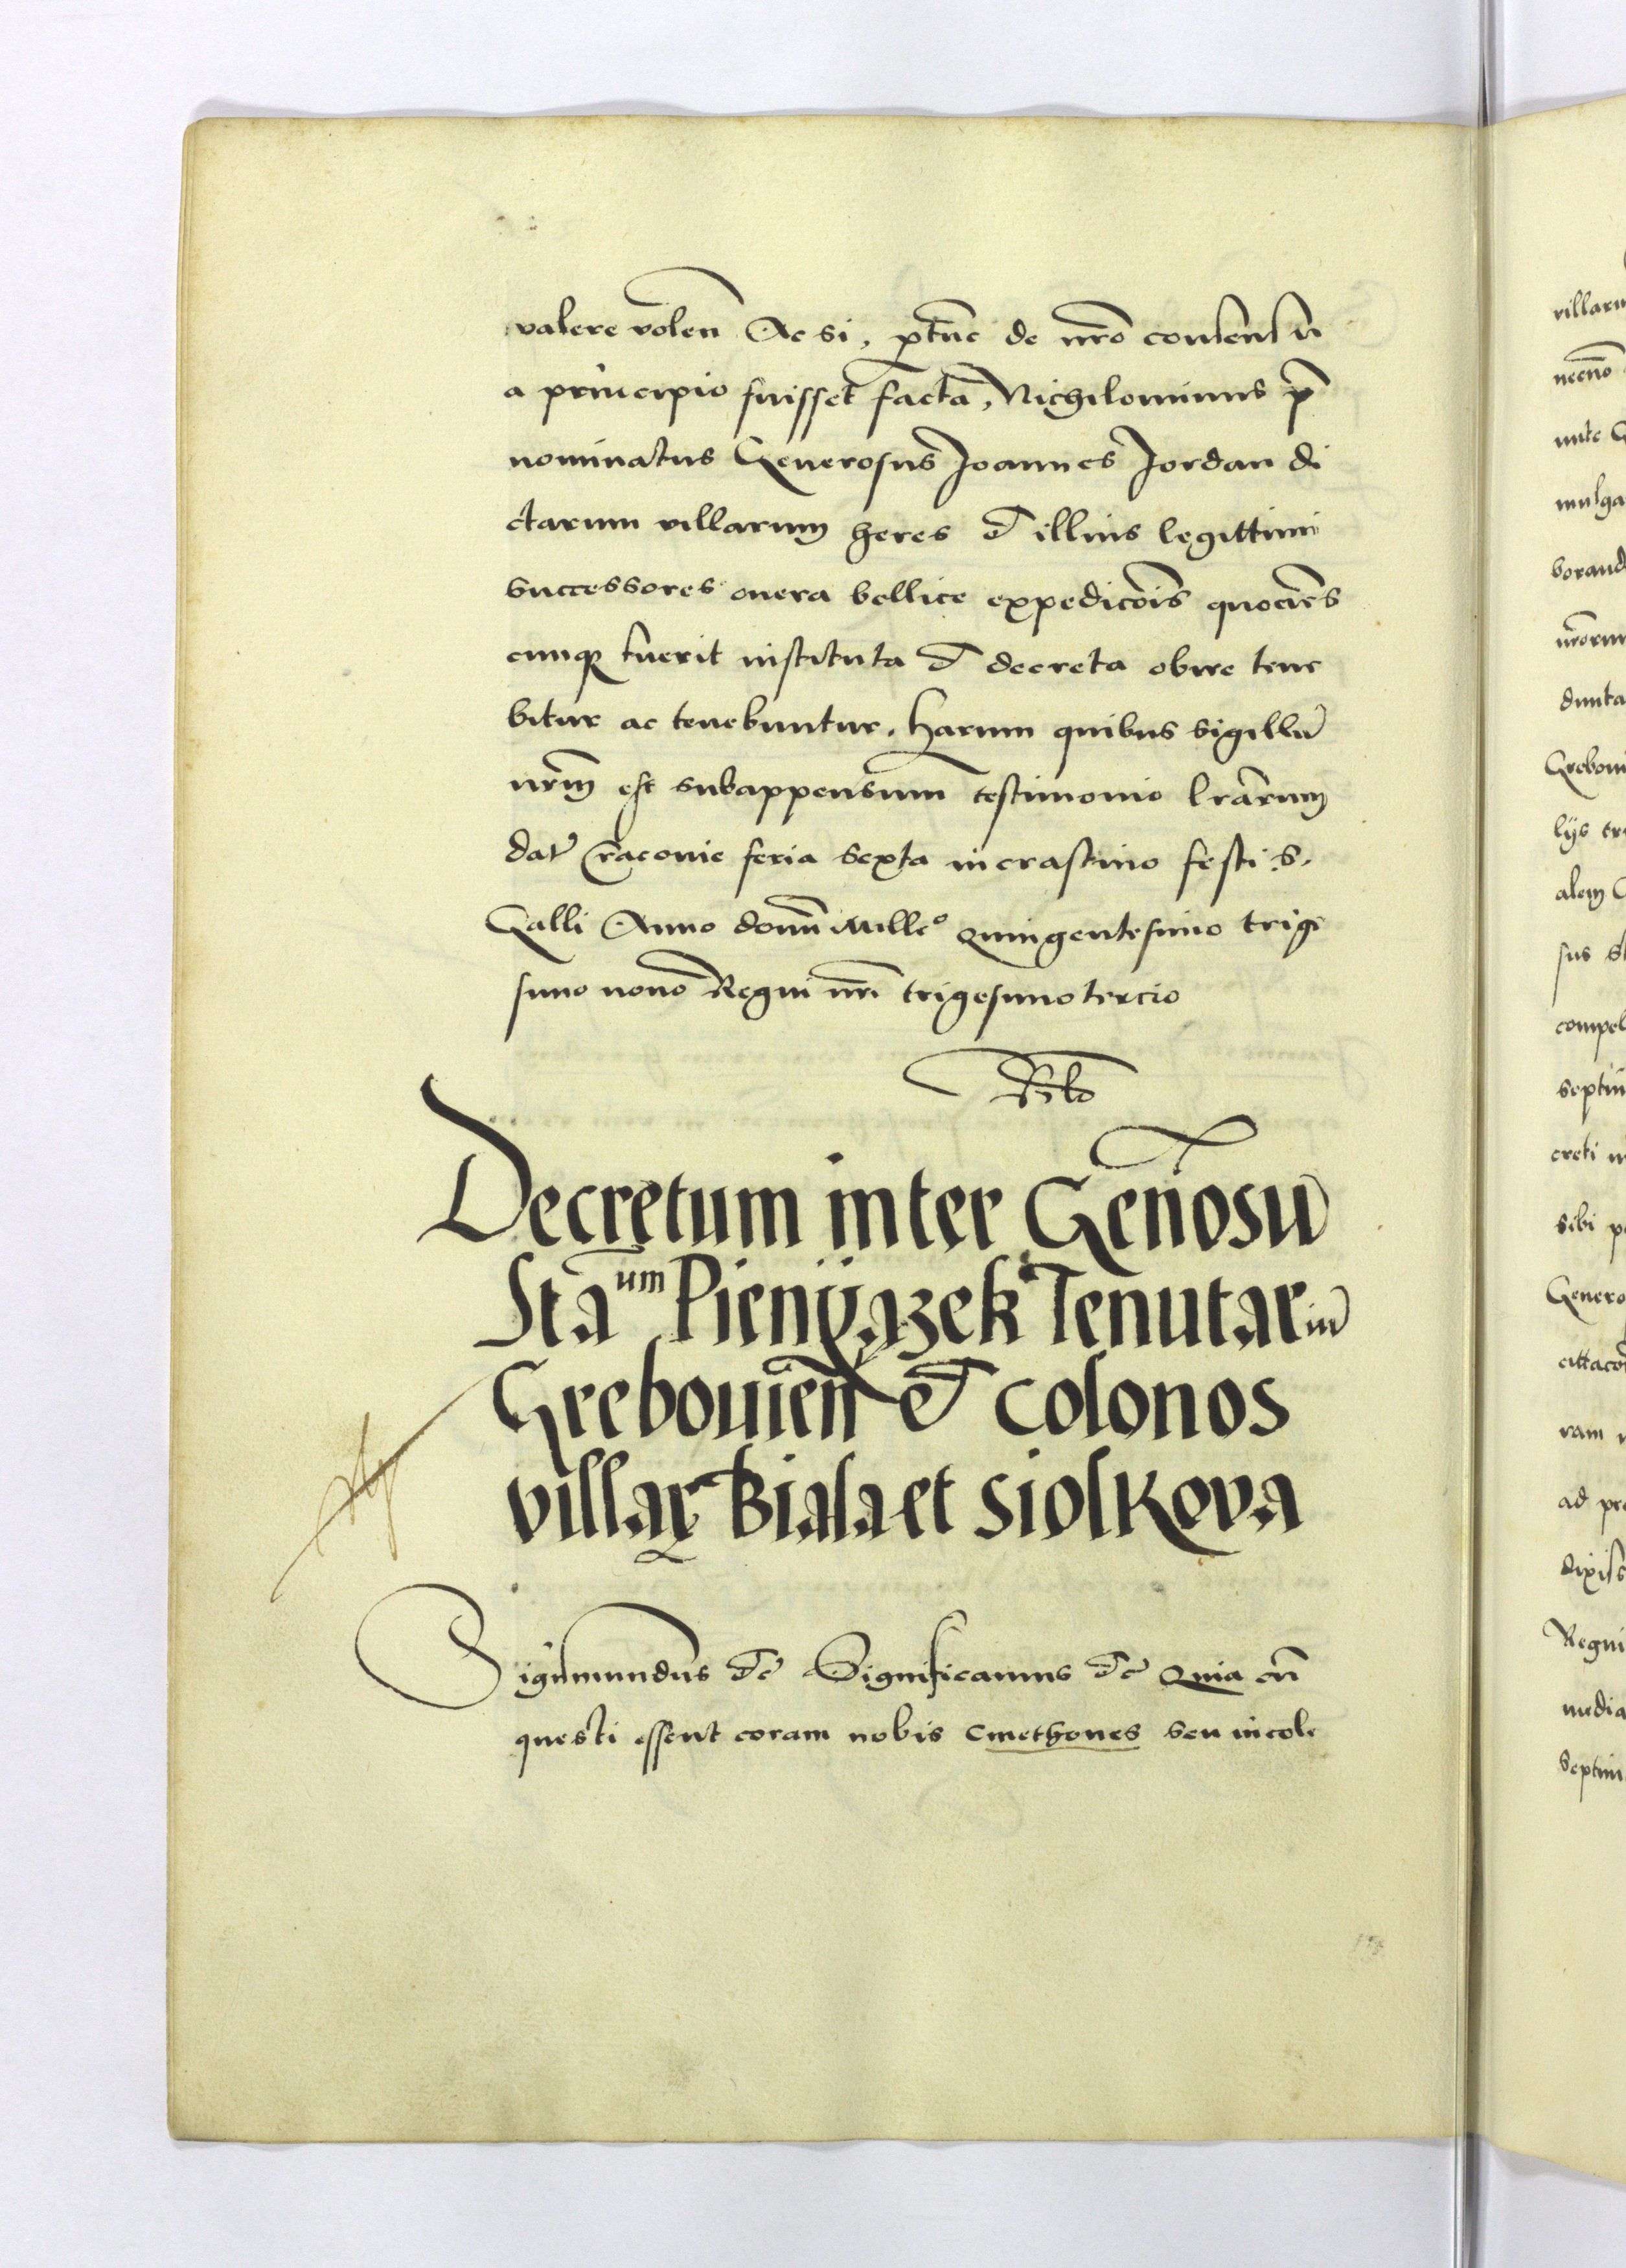 valere volen̄ Ac si, ꝑtūc de nr̄o consensu
a principio fuisset facta, Nichilominus p̄
nominatus Generosus Joannes Jordan di
ctarum villarum heres et illius legittimi
successores onera bellice expedicōis quocies
cunqꝫ fuerit instituta et decreta obire tene
bitur ac tenebuntur. Harum quibus sigillū
nr̄m est subappensum testimonio lrārum
dat̄ Craconie feria sexta in crastino festi S.
Galli Anno domī Mille° quingentesimo trige
simo nono Regni nr̄i trigesimo tercio
Decretum inter Gen̄osū
Sta um Pienyązek Tenutariū
Grebouien̄ et colonos
villaꝝ Biala et Siolkova
Sigismundus etc̄ Significamus etc̄ Quia cū
questi essent coram nobis Cmethones seu incole
villaru
necnō
mulga
borand
nr̄orum
dunta
Grebowi
alem
sus
compel
septim
creti
sibi
Genero
ram
ad
Regni
media
Septim